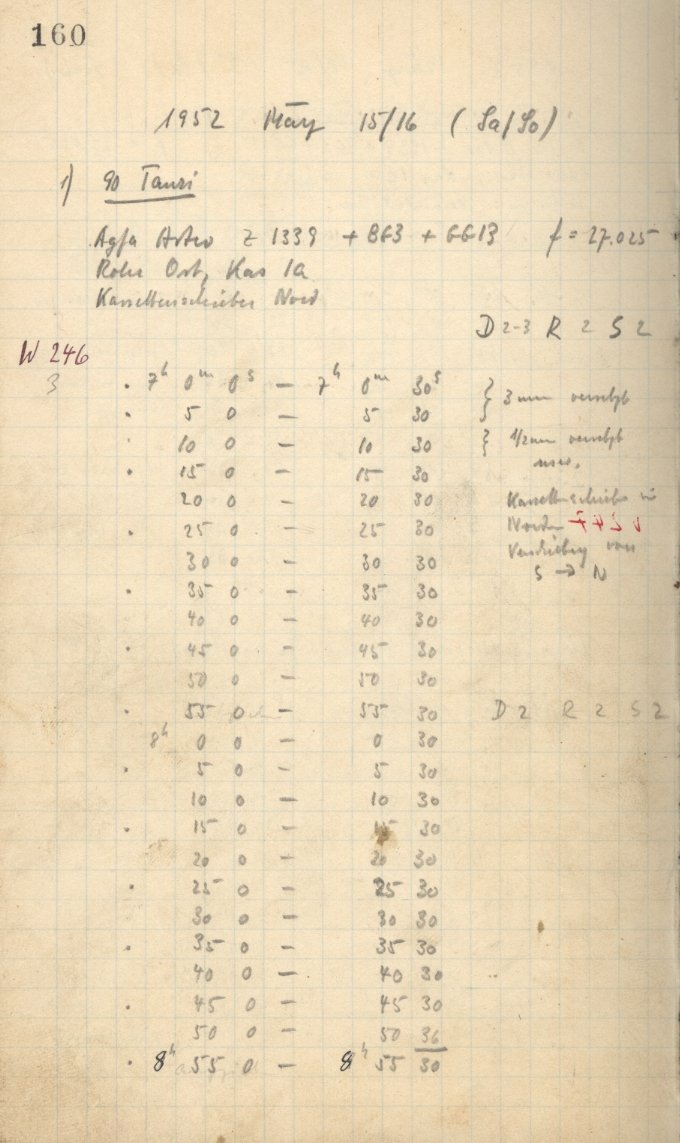 160
1952 März 15/16 (Sa/So)
1) 90 Tauri
Agfa Astro Z 1339 + 863 + 6613 f = 27.025
Rohr Ost, Kas 1a
Kassettenschieber Nord
D 2-3 R 2 S 2
W 246
3
· 7h 0m 0s — 7h 0m 30s } 3 mm versetzt
· 5 0 — 5 30
· 10 0 — 10 30 } 1/2 mm versetzt
usw.
· 15 0 — 15 30
20 0 — 20 30 Kassettenschieber im
· 25 0 — 25 30 Norden
30 0 — 30 30 Verschiebung von
S → N
· 35 0 — 35 30
40 0 — 40 30
· 45 0 — 45 30
50 0 — 50 30
· 55 0 — 55 30 D 2 R 2 S 2
8h 0 0 — 0 30
· 5 0 — 5 30
10 0 — 10 30
· 15 0 — 15 30
20 0 — 20 30
· 25 0 — 25 30
30 0 — 30 30
· 35 0 — 35 30
40 0 — 40 30
· 45 0 — 45 30
50 0 — 50 36
· 8h 55 0 — 8h 55 30